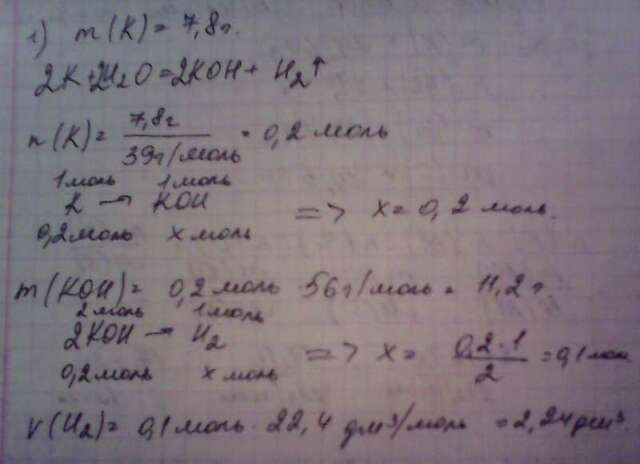 1) m(K) = 7,8г.
2K+2H2O=2KOH+ H2↑
n(K)= 7,8г / 39г/моль = 0,2 моль
1моль 1моль
K → KOH => x = 0,2 моль.
0,2моль x моль
m(KOH)= 0,2 моль · 56г/моль = 11,2 г
2моль 1моль
2KOH → H2 => x = 0,2·1 / 2 = 0,1 моль
0,2моль x моль
V(H2)= 0,1 моль · 22,4 дм³/моль = 2,24дм³